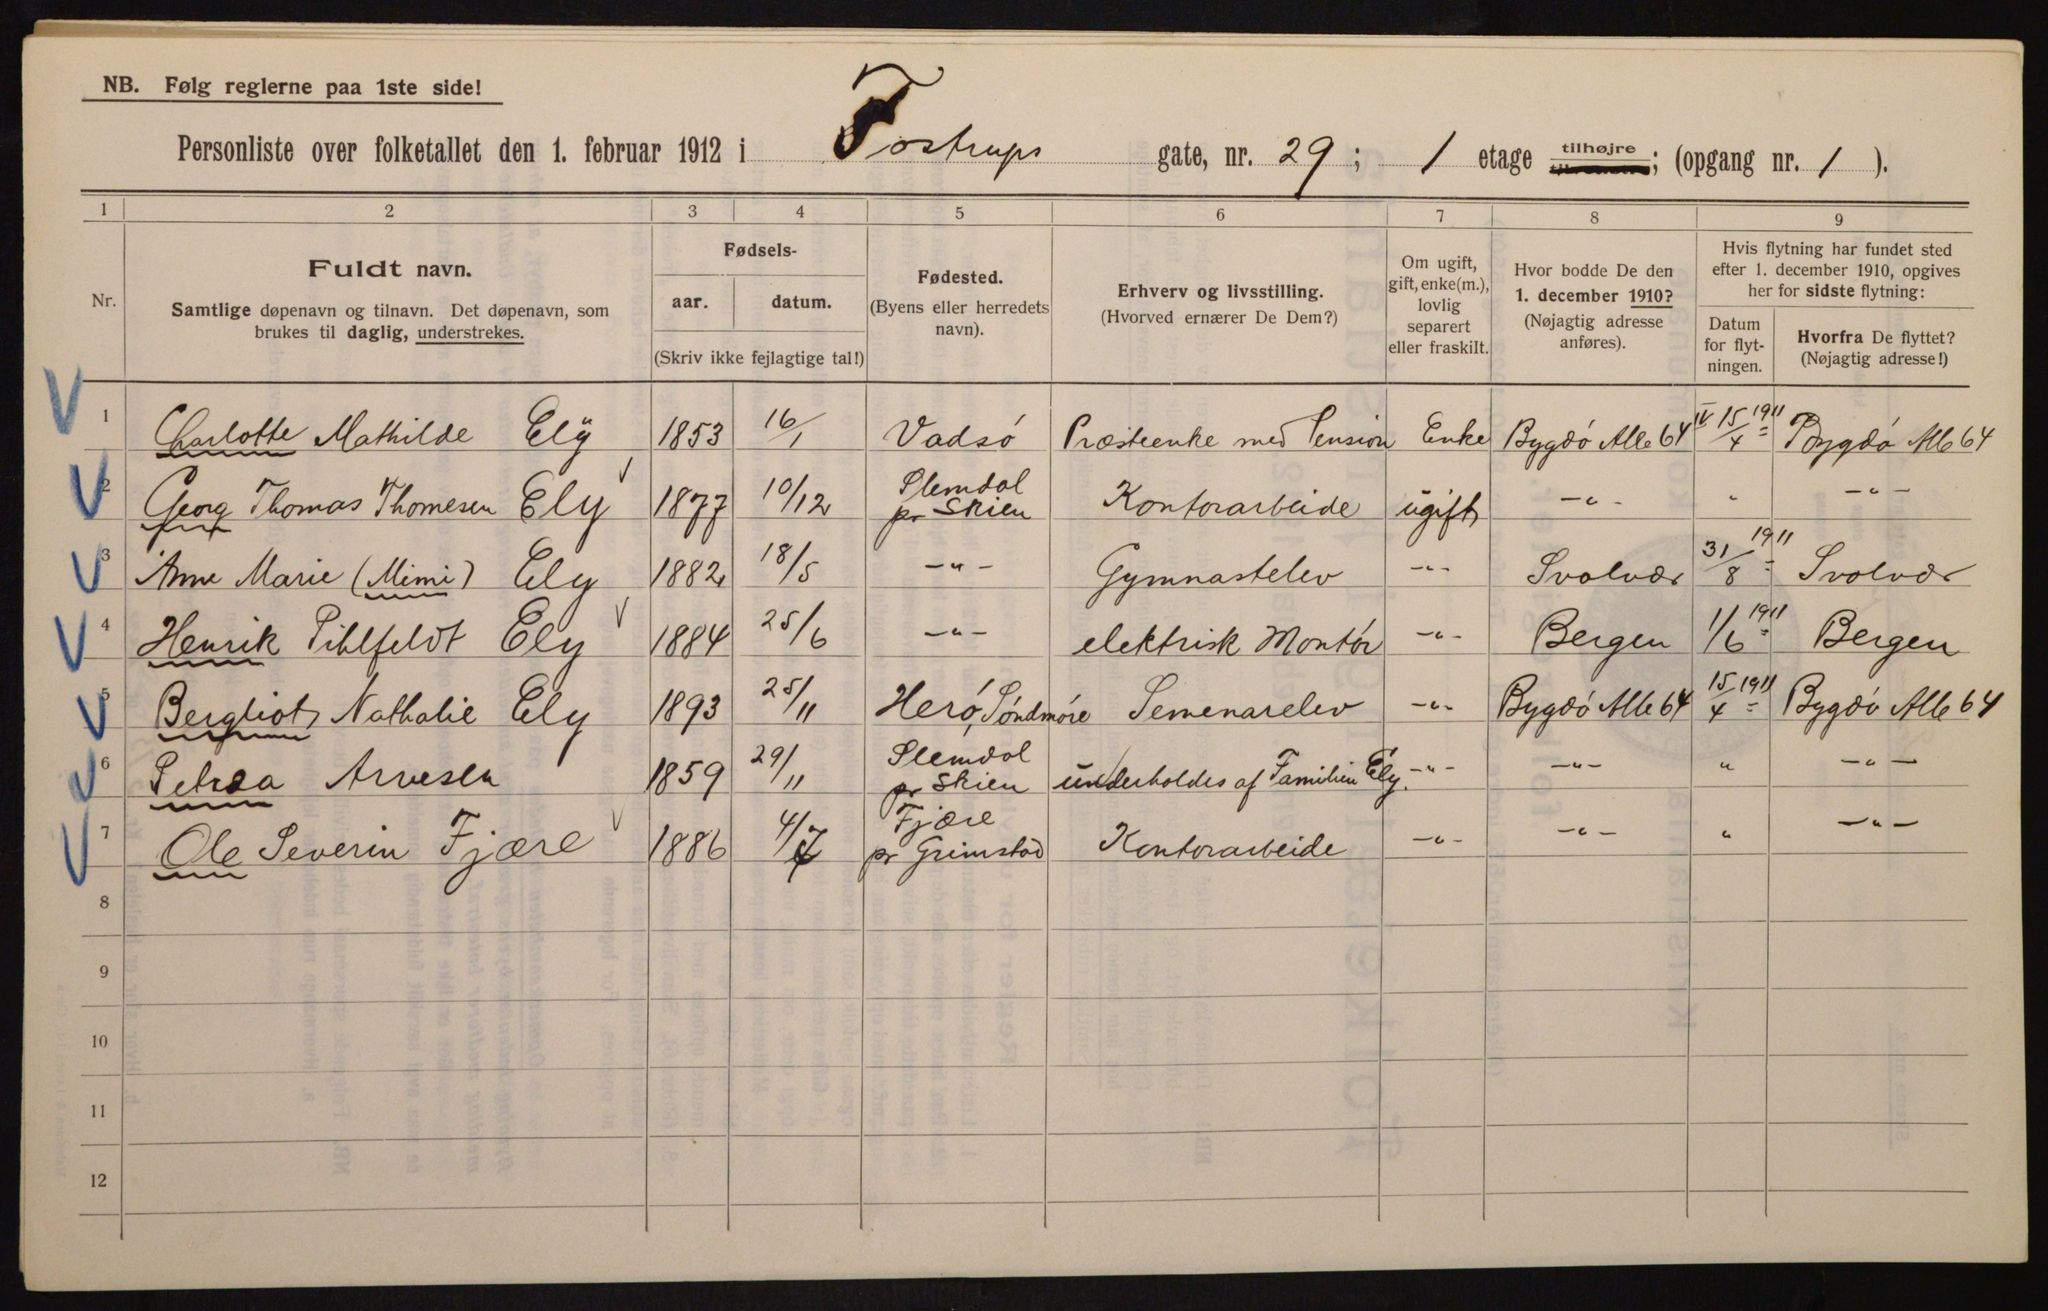 NB. Følg reglerne paa 1ste side!
Personliste over folketallet den 1. februar 1912 i Tostrups gate, nr. 29; 1 etage tilhøjre; (opgang nr. 1).
1 2 3 4 5 6 7 8 9
Nr.
Fuldt navn.
Samtlige døpenavn og tilnavn. Det døpenavn, som
brukes til daglig, understrekes.
Fødsels-
aar. datum.
(Skriv ikke fejlagtige tal!)
Fødested.
(Byens eller herredets
navn).
Erhverv og livsstilling.
(Hvorved ernærer De Dem?)
Om ugift,
gift, enke(m.),
lovlig
separert
eller fraskilt.
Hvor bodde De den
1. december 1910?
(Nøjagtig adresse
anføres).
Hvis flytning har fundet sted
efter 1. december 1910, opgives
her for sidste flytning:
Datum
for flyt-
ningen.
Hvorfra De flyttet?
(Nøjagtig adresse!)
1 Charlotte Mathilde Ely 1853 16/1 Vadsö Præsteenke med Pension Enke Bygdö Alle 64 IV 15/4 1911 Bygdö Alle 64
2 Georg Thomas Thomesen Ely 1877 10/12 Slemdal pr Skien Kontorarbeide ugift -"- " -"-
3 Anne Marie (Mimi) Ely 1882 18/5 -"- Gymnastelev -"- Svolvær 31/8 1911 Svolvær
4 Henrik Pihlfeldt Ely 1884 25/6 -"- elektrisk Montör -"- Bergen 1/6 1911 Bergen
5 Bergliot Nathalie Ely 1893 25/11 Herö, Söndmöre Semenarelev -"- Bygdö Alle 64 15/4 1911 Bygdö Alle 64
6 Petrea Arvesen 1859 29/11 Slemdal pr Skien underholdes af Familien Ely. -"- -"- " -"-
7 Ole Severin Fjære 1886 4/7 Fjære pr Grimstad Kontorarbeide -"- -"- " -"-
8
9
10
11
12